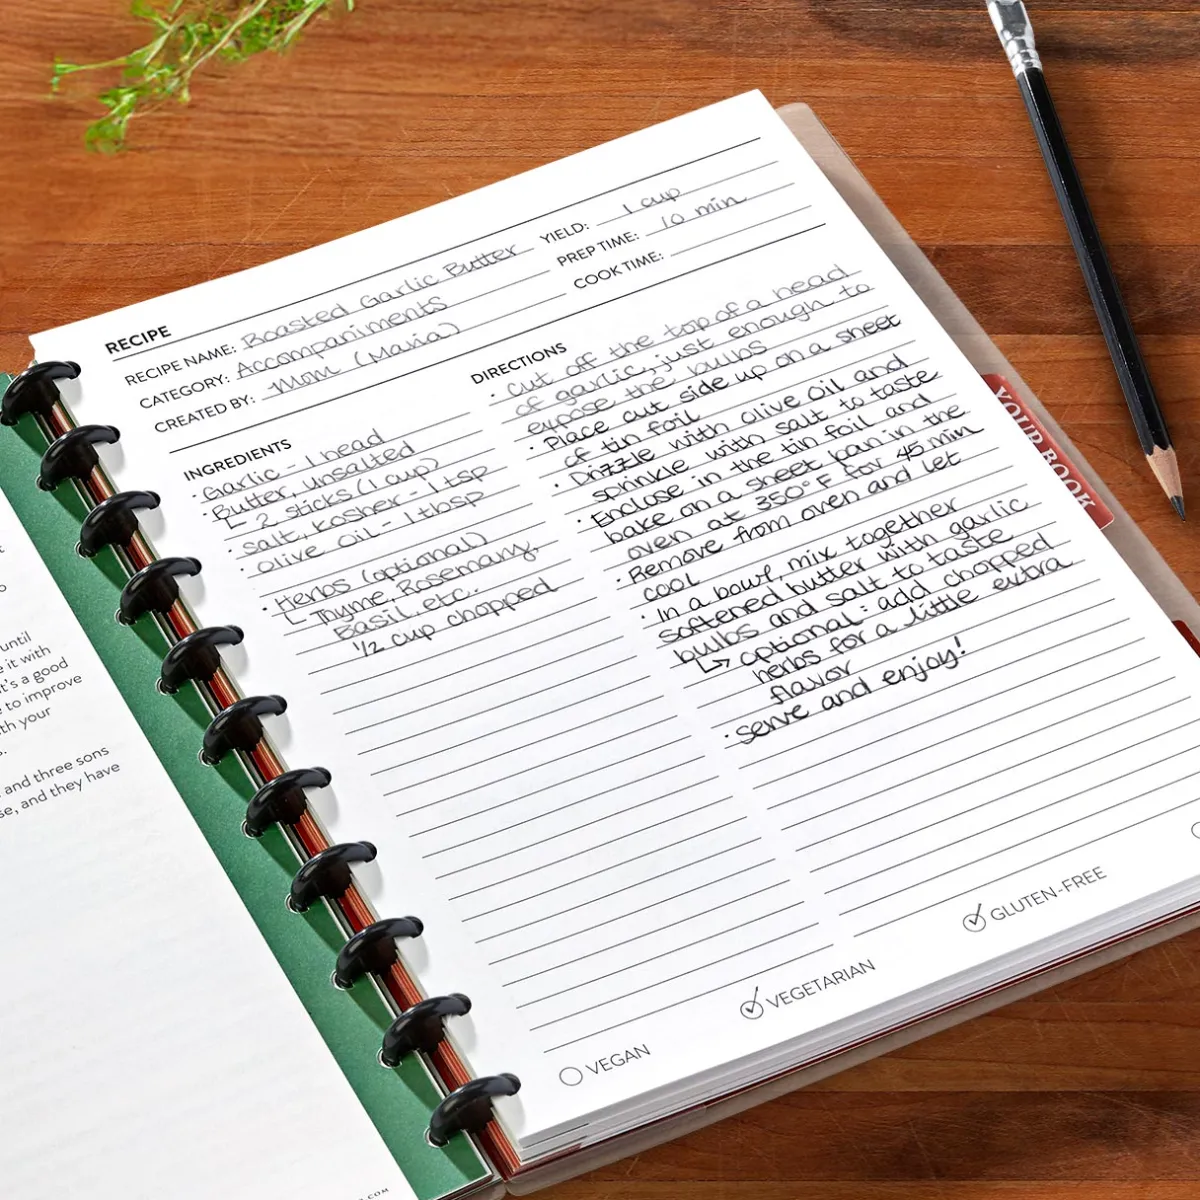 RECIPE
RECIPE NAME: Roasted Garlic Butter
CATEGORY: Accompaniments
CREATED BY: Mom (Maria)
YIELD: 1 cup
PREP TIME: 10 min
COOK TIME:
INGREDIENTS
· Garlic - 1 head
· Butter, unsalted
↳ 2 sticks (1 cup)
· Salt, kosher - 1 tsp
· Olive Oil - 1 tbsp
· Herbs (optional)
↳ Thyme, Rosemary,
Basil, etc.
1/2 cup chopped
DIRECTIONS
· Cut off the top of a head
of garlic, just enough to
expose the bulbs
· Place cut side up on a sheet
of tin foil
· Drizzle with Olive Oil and
sprinkle with salt to taste
· Enclose in the tin foil and
bake on a sheet pan in the
oven at 350°F for 45 min
· Remove from oven and let
cool
· In a bowl, mix together
softened butter with garlic
bulbs and salt to taste
↳ optional: add chopped
herbs for a little extra
flavor
· Serve and enjoy!
VEGAN
VEGETARIAN
GLUTEN-FREE
YOUR BOOK
until
it with
's a good
to improve
th your
and three sons
se, and they have
.COM